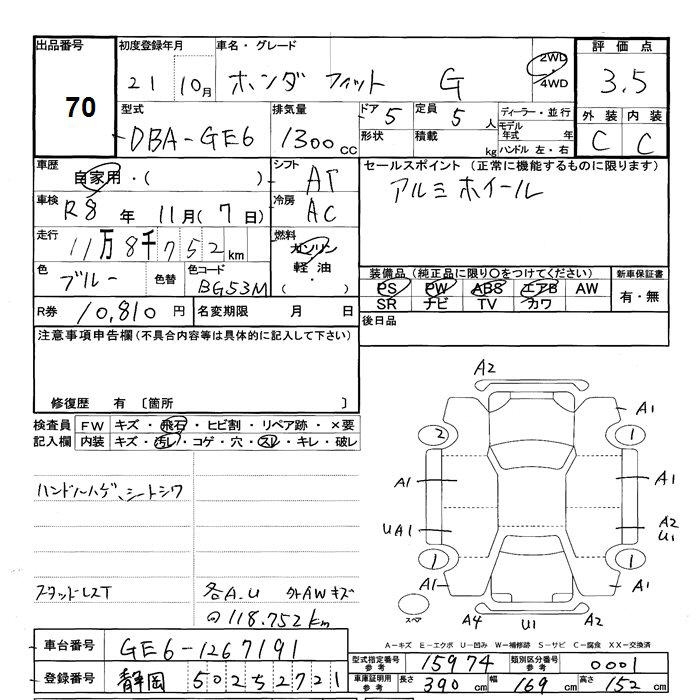 出品番号 初度登録年月 車名・グレード 評価点
70 21 10月 ホンダ フィット G 2WD・4WD 3.5
型式 排気量 ドア 5 定員 5人 ディーラー・並行 外装 内装
DBA-GE6 1300cc 形状 積載 kg モデル年式 年 C C
ハンドル 左・右
車歴 自家用・( ) シフト AT セールスポイント (正常に機能するものに限ります)
車検 R8年 11月(7日) 冷房 AC アルミホイール
走行 11万8千752km 燃料 ガソリン
軽油・( )
色 ブルー 色替 色コード BG53M 装備品 (純正品に限り○をつけてください) 新車保証書
PS PW ABS エアB AW 有・無
SR ナビ TV カワ
R券 10,810円 名変期限 月 日 後日品
注意事項申告欄(不具合内容等は具体的に記入して下さい)
修復歴 有 〔箇所 〕
検査員 FW キズ・飛石・ヒビ割・リペア跡・×要
記入欄 内装 キズ・汚レ・コゲ・穴・スレ・キレ・破レ
ハンドルハゲ、シートシワ
スタッドレスT 各A.U 外AWキズ
118.752km
A2
A1
2 1
A1 A1
UA1 A2
U1
1 1
A1 A1
スペア A4 U1 A2
A-キズ E-エクボ U-凹み W-補修跡 S-サビ C-腐食 XX-交換済
車台番号 GE6-1267191
型式指定番号 参考 15974 類別区分番号 参考 0001
登録番号 静岡 502 5 2721
車庫証明用 参考 長さ 390cm 幅 169cm 高さ 152cm